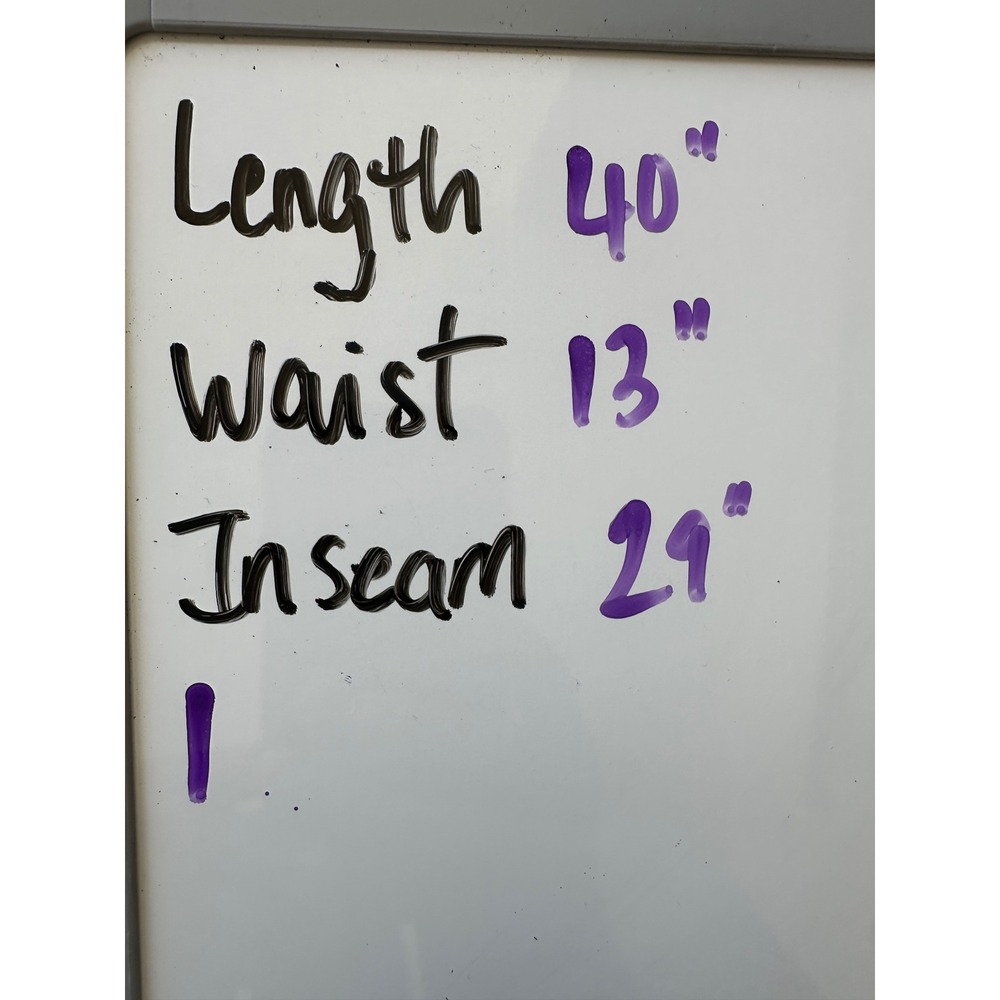 Length 40"
Waist 13"
Inseam 29"
1